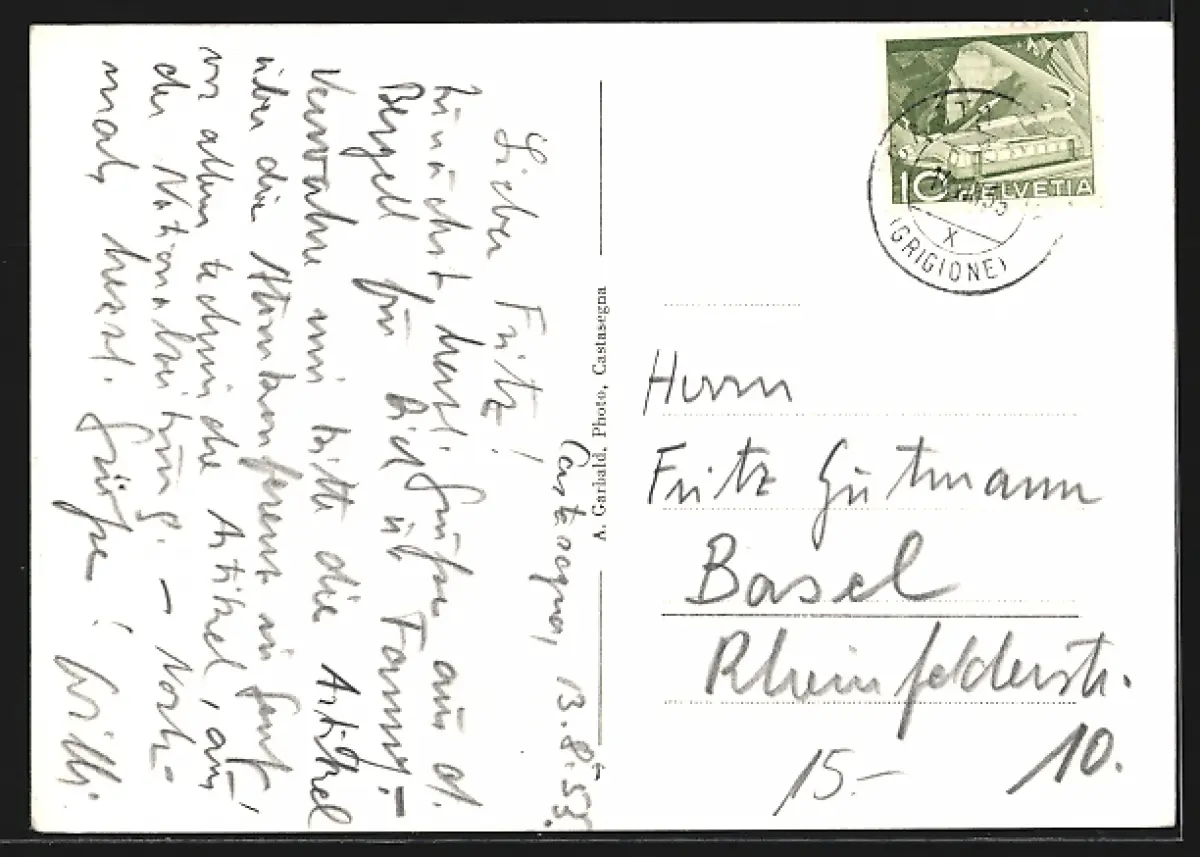 Castasegna, 13.8.55.
Lieber Fritz!
Zunächst herzl. Grüße aus d.
Bergell für Dich u. Fanny! –
Verwahre mir bitte die Artikel
über die Atomkonferenz in Genf,
vor allem technische Artikel, aus
der Nationalzeitung. – Noch-
mals herzl. Grüße! Willi.
A. Garbald, Photo, Castasegna
10 HELVETIA
(GRIGIONE)
X
Herrn
Fritz Gutmann
Basel
Rheinfelderstr.
10.
15.–